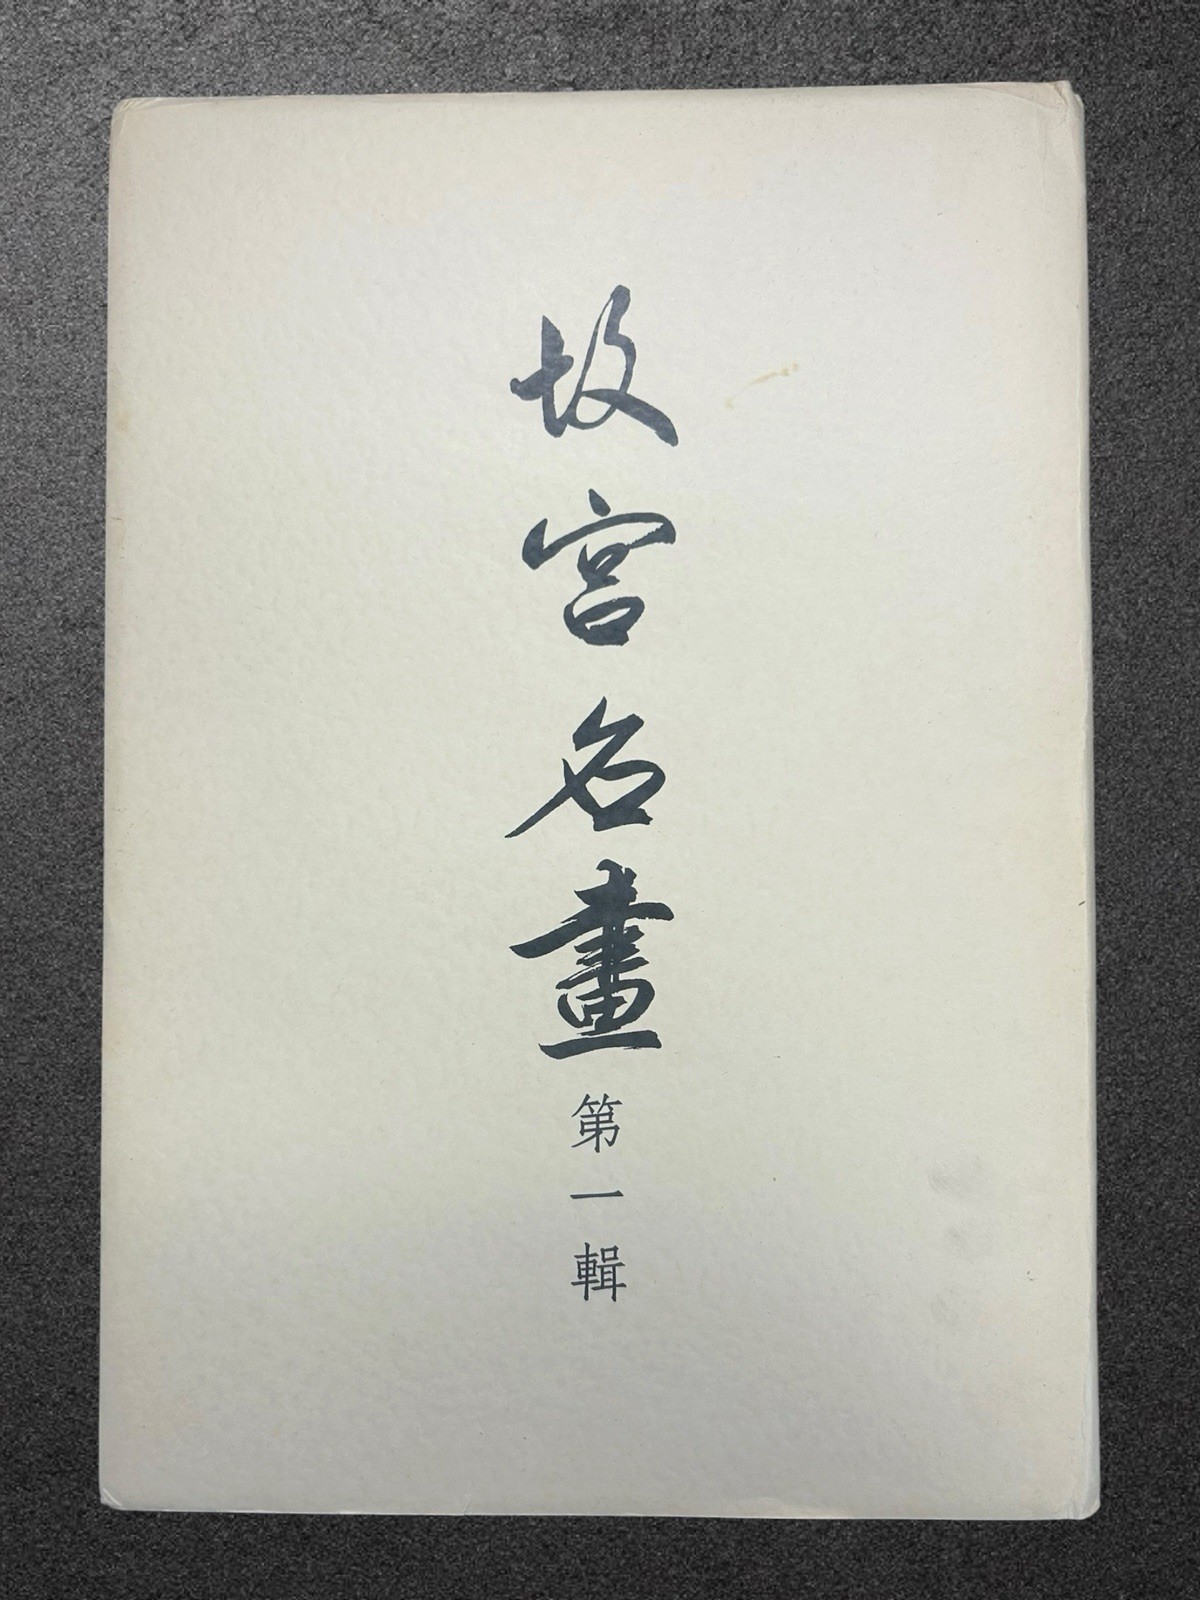 故宮名畫
第一輯